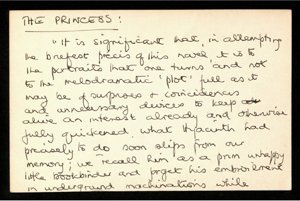 THE PRINCESS:
"It is significant that, in attempting
the briefest precis of this novel, it is to
the portraits that one turns and not
to the melodramatic 'plot' full as it
may be of surprises & coincidences
and unnecessary devices to keep
alive an interest already and otherwise
fully quickened. What Hyacinth had
precisely to do soon slips from our
memory; we recall him as a prim unhappy
little bookbinder and forget his embroilment
in underground machinations while